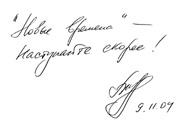 "Новые Времена" –
Наступайте скорее!
9.11.04